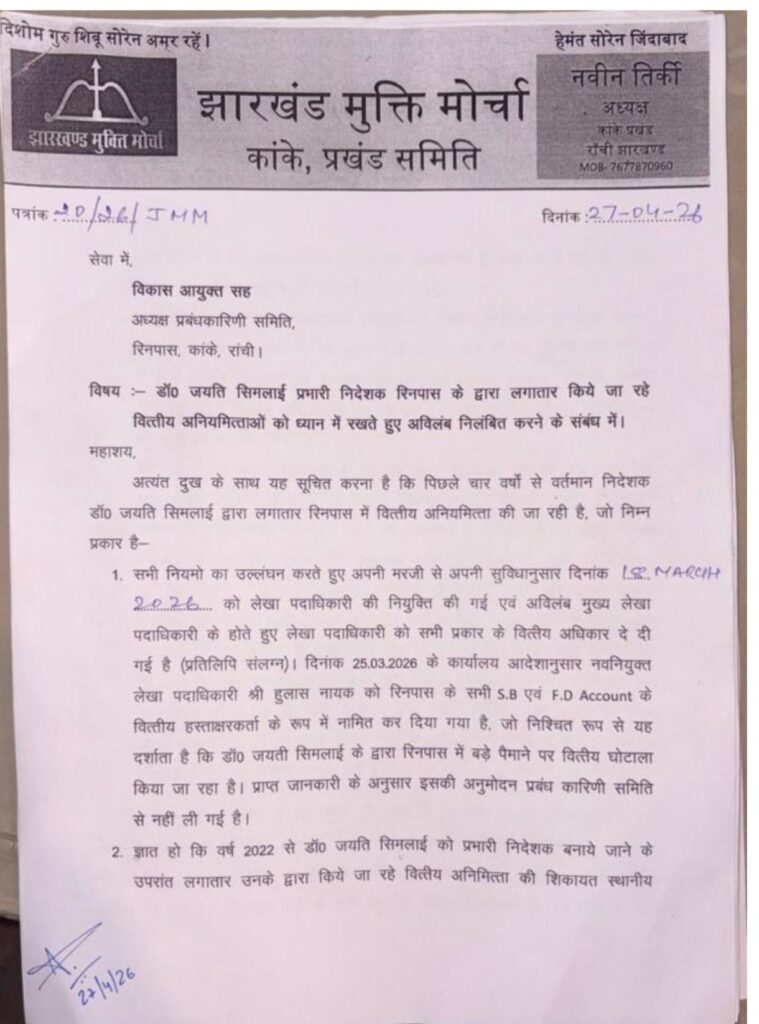 दिशोम गुरु शिबू सोरेन अमर रहें।
हेमंत सोरेन जिंदाबाद
झारखण्ड मुक्ति मोर्चा
झारखंड मुक्ति मोर्चा
कांके, प्रखंड समिति
नवीन तिर्की
अध्यक्ष
कांके प्रखंड
राँची झारखण्ड
MOB- 7677870960
पत्रांक 20/26/ JMM
दिनांक :27-04-26
सेवा में,
विकास आयुक्त सह
अध्यक्ष प्रबंधकारिणी समिति,
रिनपास, कांके, रांची।
विषय :– डॉ0 जयति सिमलाई प्रभारी निदेशक रिनपास के द्वारा लगातार किये जा रहे
वित्तीय अनियमित्ताओं को ध्यान में रखते हुए अविलंब निलंबित करने के संबंध में।
महाशय,
अत्यंत दुख के साथ यह सूचित करना है कि पिछले चार वर्षो से वर्तमान निदेशक
डॉ0 जयति सिमलाई द्वारा लगातार रिनपास में वित्तीय अनियमित्ता की जा रही है, जो निम्न
प्रकार है–
1. सभी नियमो का उल्लंघन करते हुए अपनी मरजी से अपनी सुविधानुसार दिनांक 18 MARCH
2026 को लेखा पदाधिकारी की नियुक्ति की गई एवं अविलंब मुख्य लेखा
पदाधिकारी के होते हुए लेखा पदाधिकारी को सभी प्रकार के वित्तीय अधिकार दे दी
गई है (प्रतिलिपि संलग्न)। दिनांक 25.03.2026 के कार्यालय आदेशानुसार नवनियुक्त
लेखा पदाधिकारी श्री हुलास नायक को रिनपास के सभी S.B एवं F.D Account के
वित्तीय हस्ताक्षरकर्ता के रूप में नामित कर दिया गया है, जो निश्चित रूप से यह
दर्शाता है कि डॉ0 जयती सिमलाई के द्वारा रिनपास में बड़े पैमाने पर वित्तीय घोटाला
किया जा रहा है। प्राप्त जानकारी के अनुसार इसकी अनुमोदन प्रबंध कारिणी समिति
से नहीं ली गई है।
2. ज्ञात हो कि वर्ष 2022 से डॉ0 जयति सिमलाई को प्रभारी निदेशक बनाये जाने के
उपरांत लगातार उनके द्वारा किये जा रहे वित्तीय अनिमित्ता की शिकायत स्थानीय
27/4/26